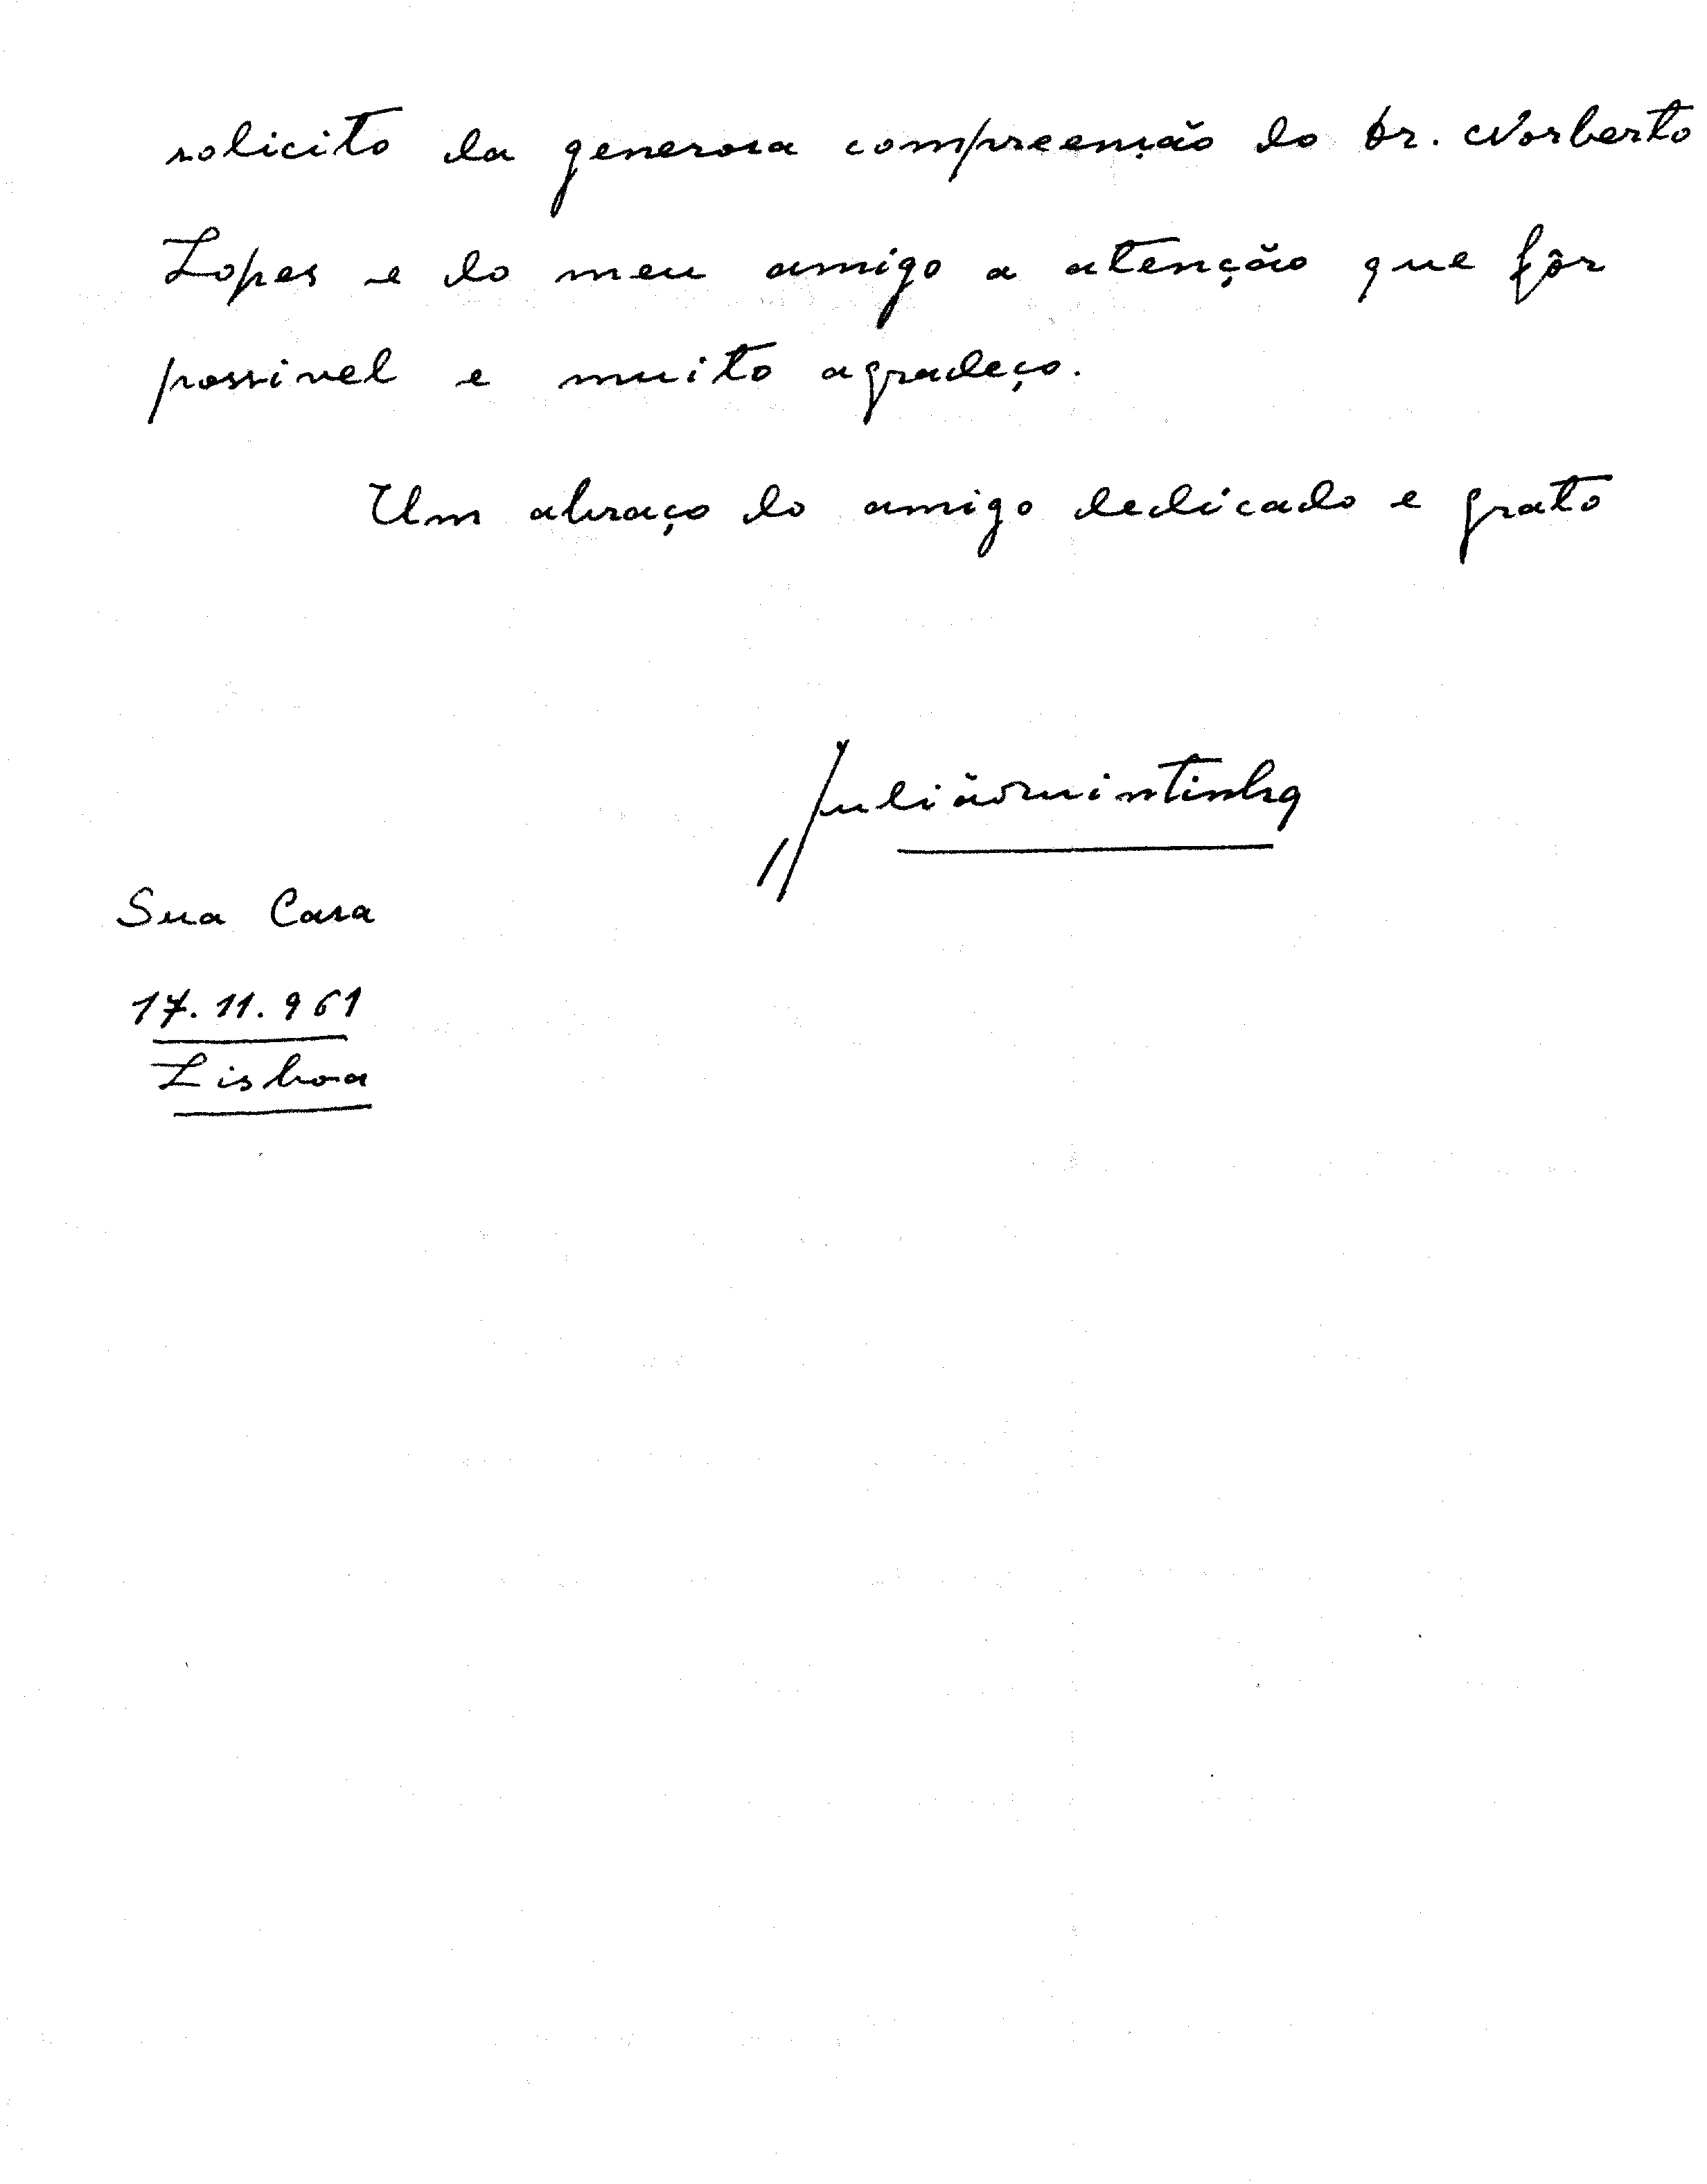 solicito da generosa compreensão do Dr. Norberto
Lopes e do meu amigo a atenção que fôr
possivel e muito agradeço.
Um abraço do amigo dedicado e grato
Julião Quintinha
Sua Casa
17.11.961
Lisboa